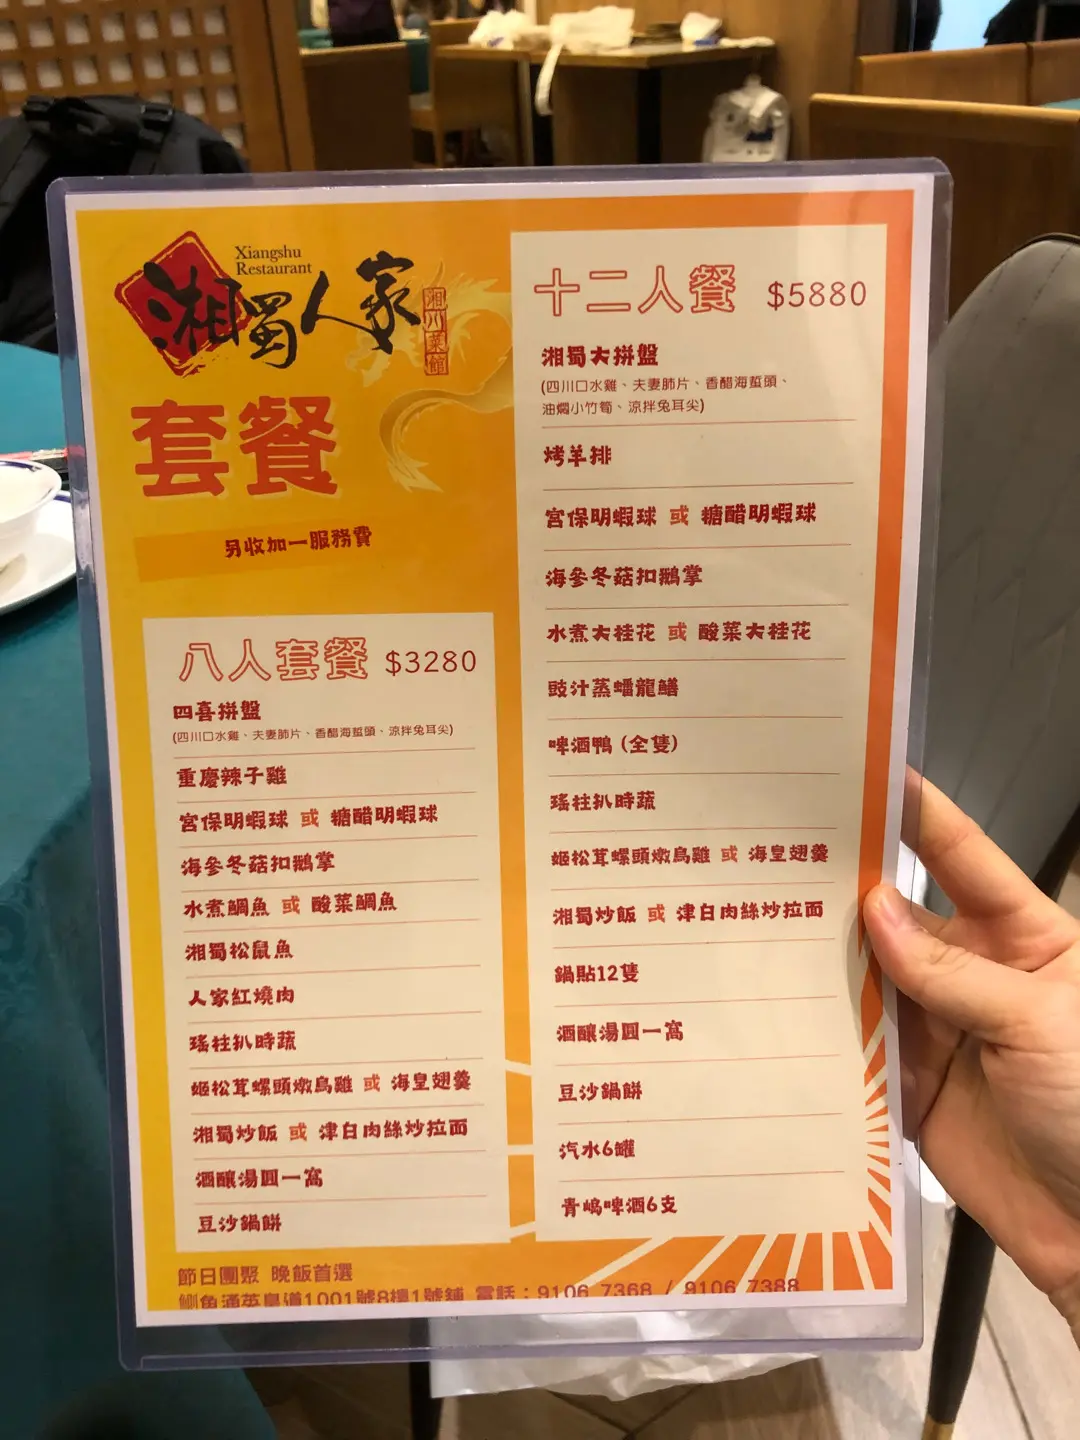 Xiangshu
Restaurant
湘蜀人家
湘川菜館
套餐
另收加一服務費
八人套餐 $3280
四喜拼盤
(四川口水雞、夫妻肺片、香醋海蜇頭、涼拌兔耳尖)
重慶辣子雞
宮保明蝦球 或 糖醋明蝦球
海參冬菇扣鵝掌
水煮鯛魚 或 酸菜鯛魚
湘蜀松鼠魚
人家紅燒肉
瑤柱扒時蔬
姬松茸螺頭燉烏雞 或 海皇翅羹
湘蜀炒飯 或 津白肉絲炒拉面
酒釀湯圓一窩
豆沙鍋餅
十二人餐 $5880
湘蜀大拼盤
(四川口水雞、夫妻肺片、香醋海蜇頭、
油燜小竹筍、涼拌兔耳尖)
烤羊排
宮保明蝦球 或 糖醋明蝦球
海參冬菇扣鵝掌
水煮大桂花 或 酸菜大桂花
豉汁蒸蟠龍鱔
啤酒鴨 (全隻)
瑤柱扒時蔬
姬松茸螺頭燉烏雞 或 海皇翅羹
湘蜀炒飯 或 津白肉絲炒拉面
鍋貼12隻
酒釀湯圓一窩
豆沙鍋餅
汽水6罐
青嶋啤酒6支
節日團聚 晚飯首選
鰂魚涌英皇道1001號8樓1號舖 電話：9106 7368 / 9106 7388